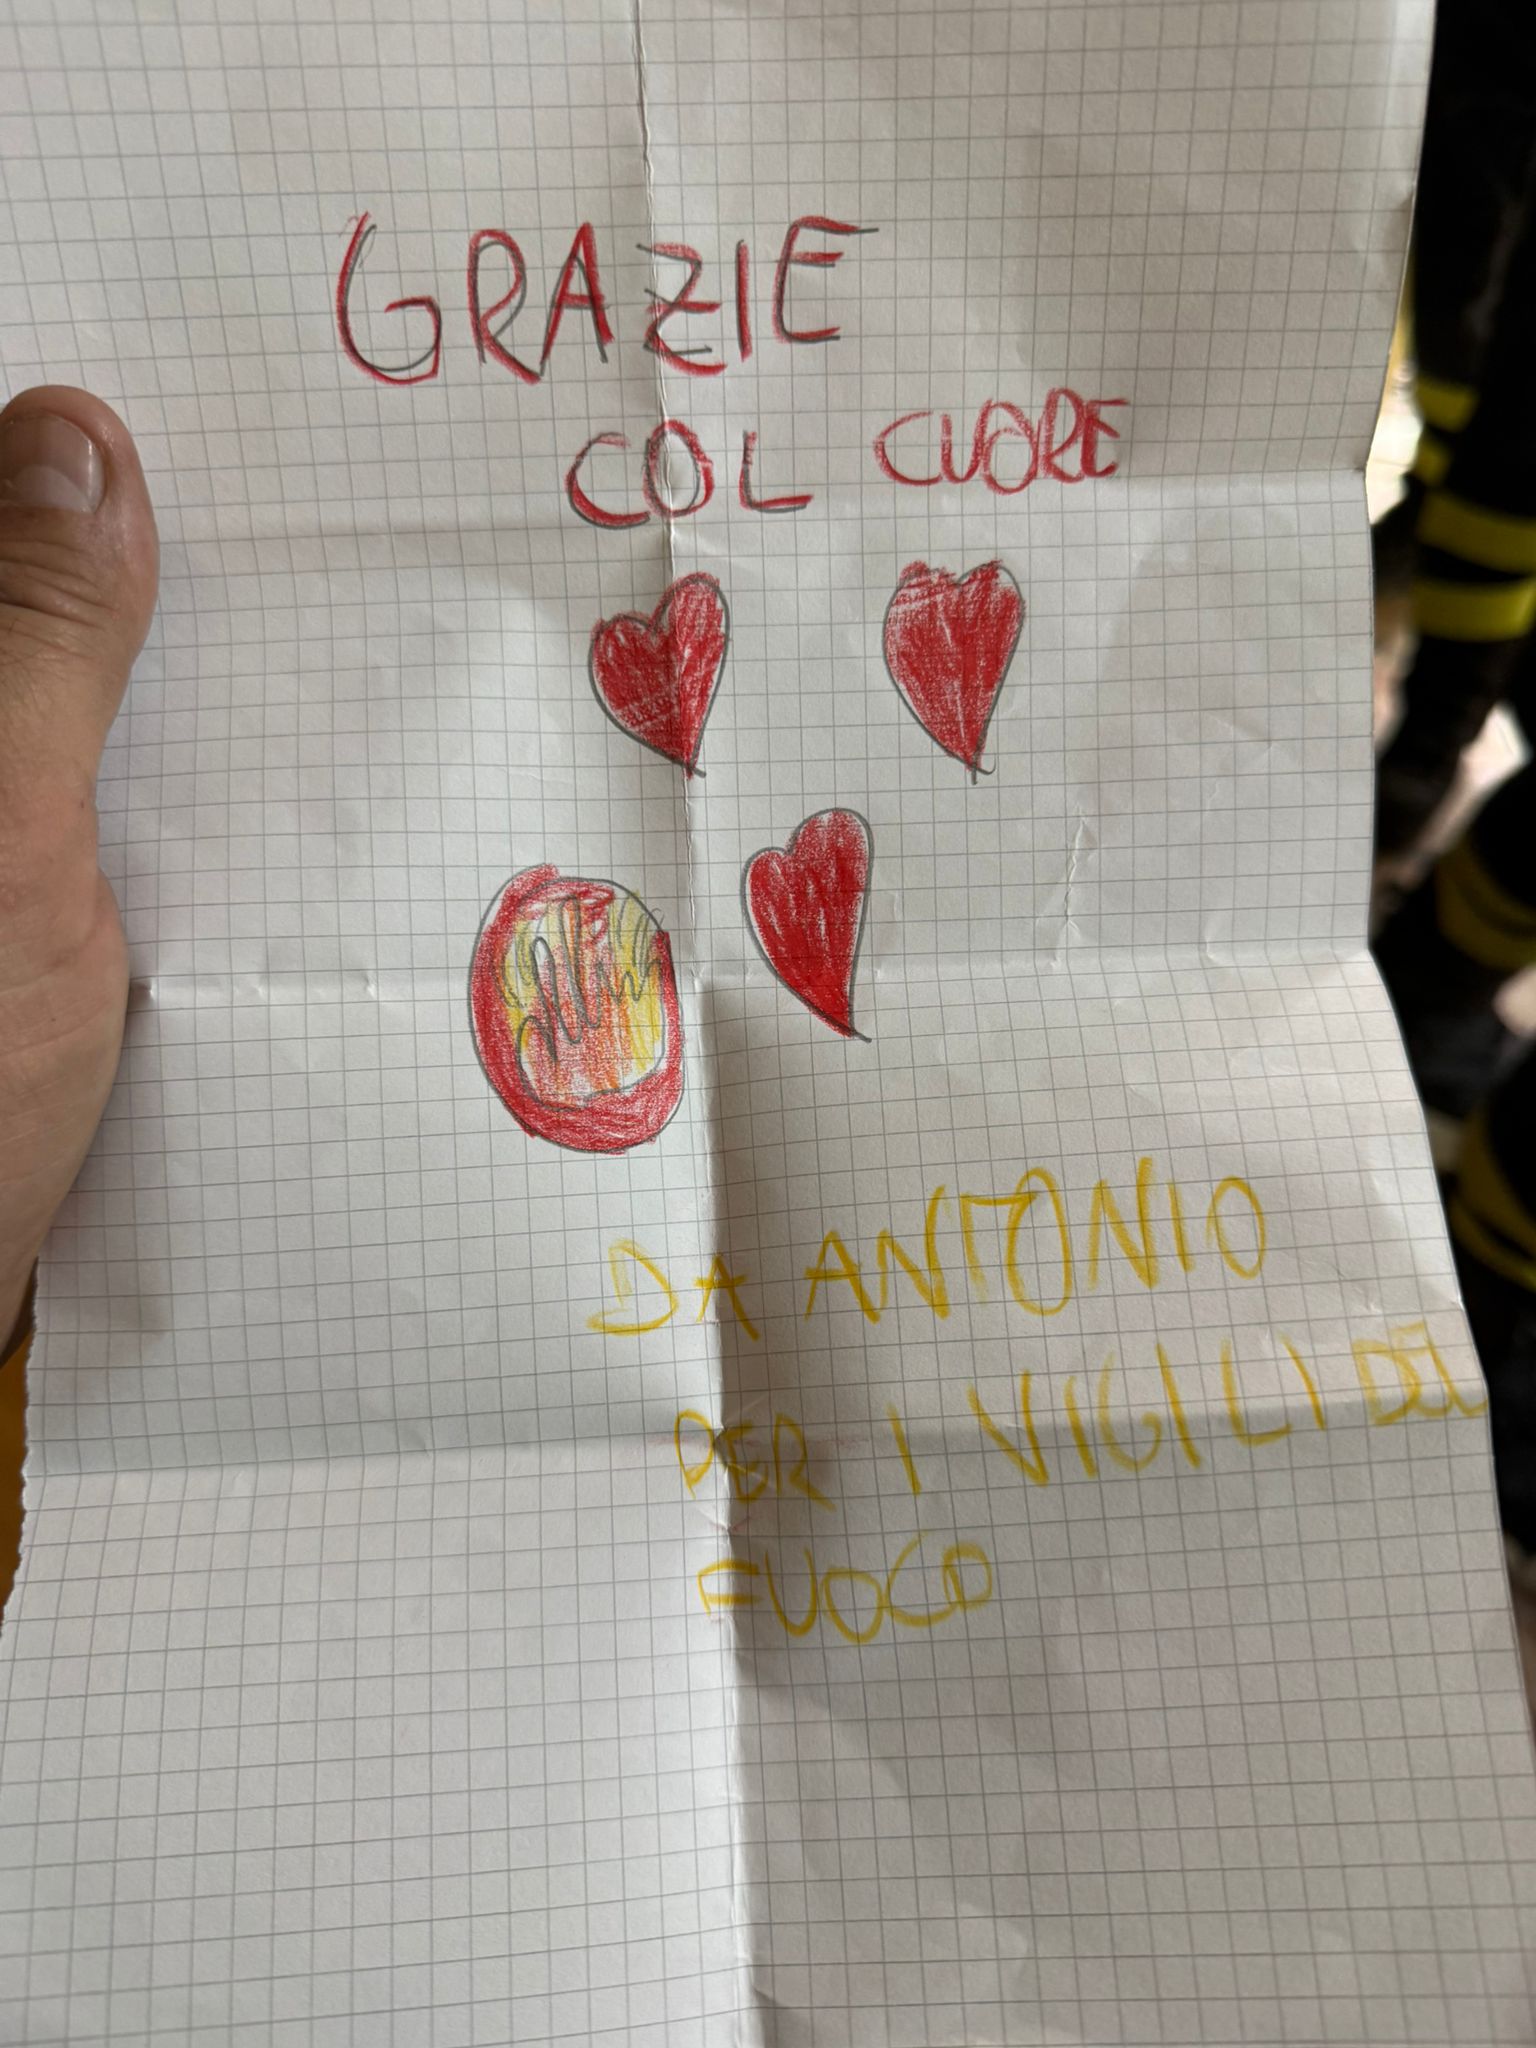 GRAZIE
COL CUORE
DA ANTONIO
PER I VIGILI DEL
FUOCO